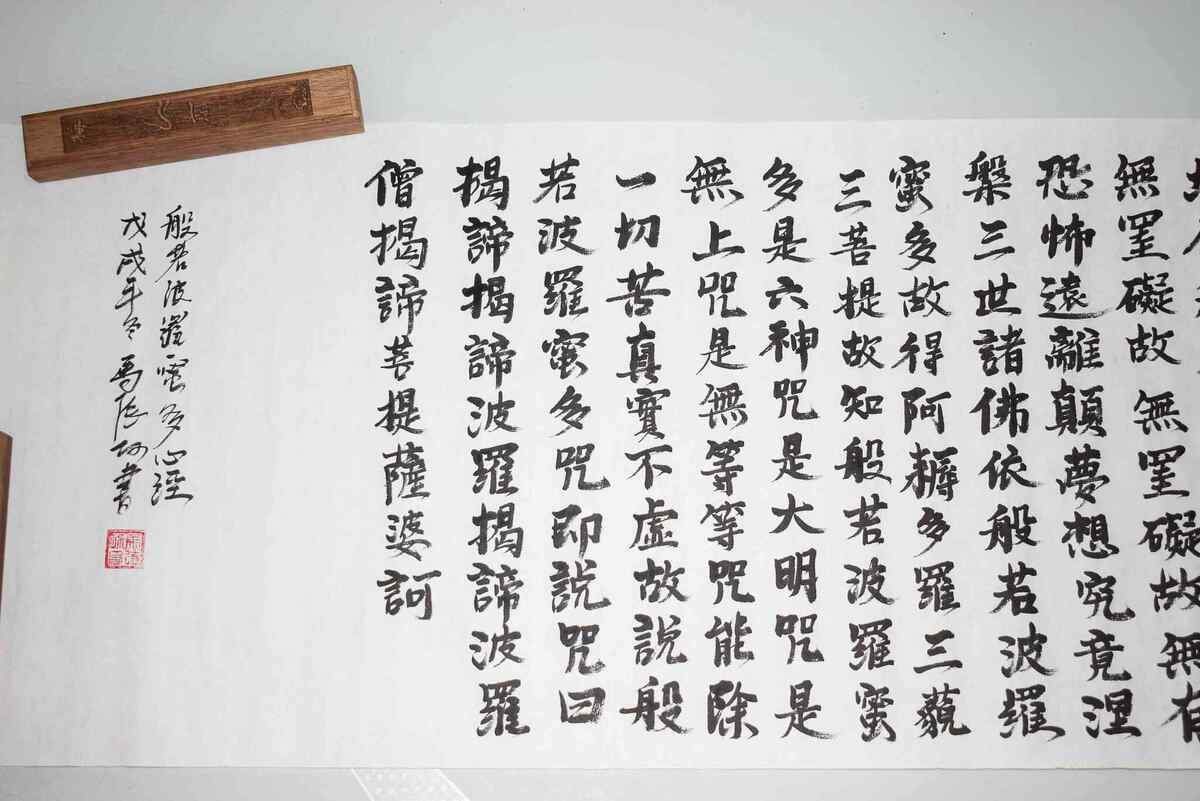 無罣礙故無罣礙故無有
恐怖遠離顛夢想究竟涅
槃三世諸佛依般若波羅
蜜多故得阿耨多羅三藐
三菩提故知般若波羅蜜
多是六神咒是大明咒是
無上咒是無等等咒能除
一切苦真實不虛故說般
若波羅蜜多咒即說咒曰
揭諦揭諦波羅揭諦波羅
僧揭諦菩提薩婆訶
般若波羅蜜多心經
戊戌年冬馬書